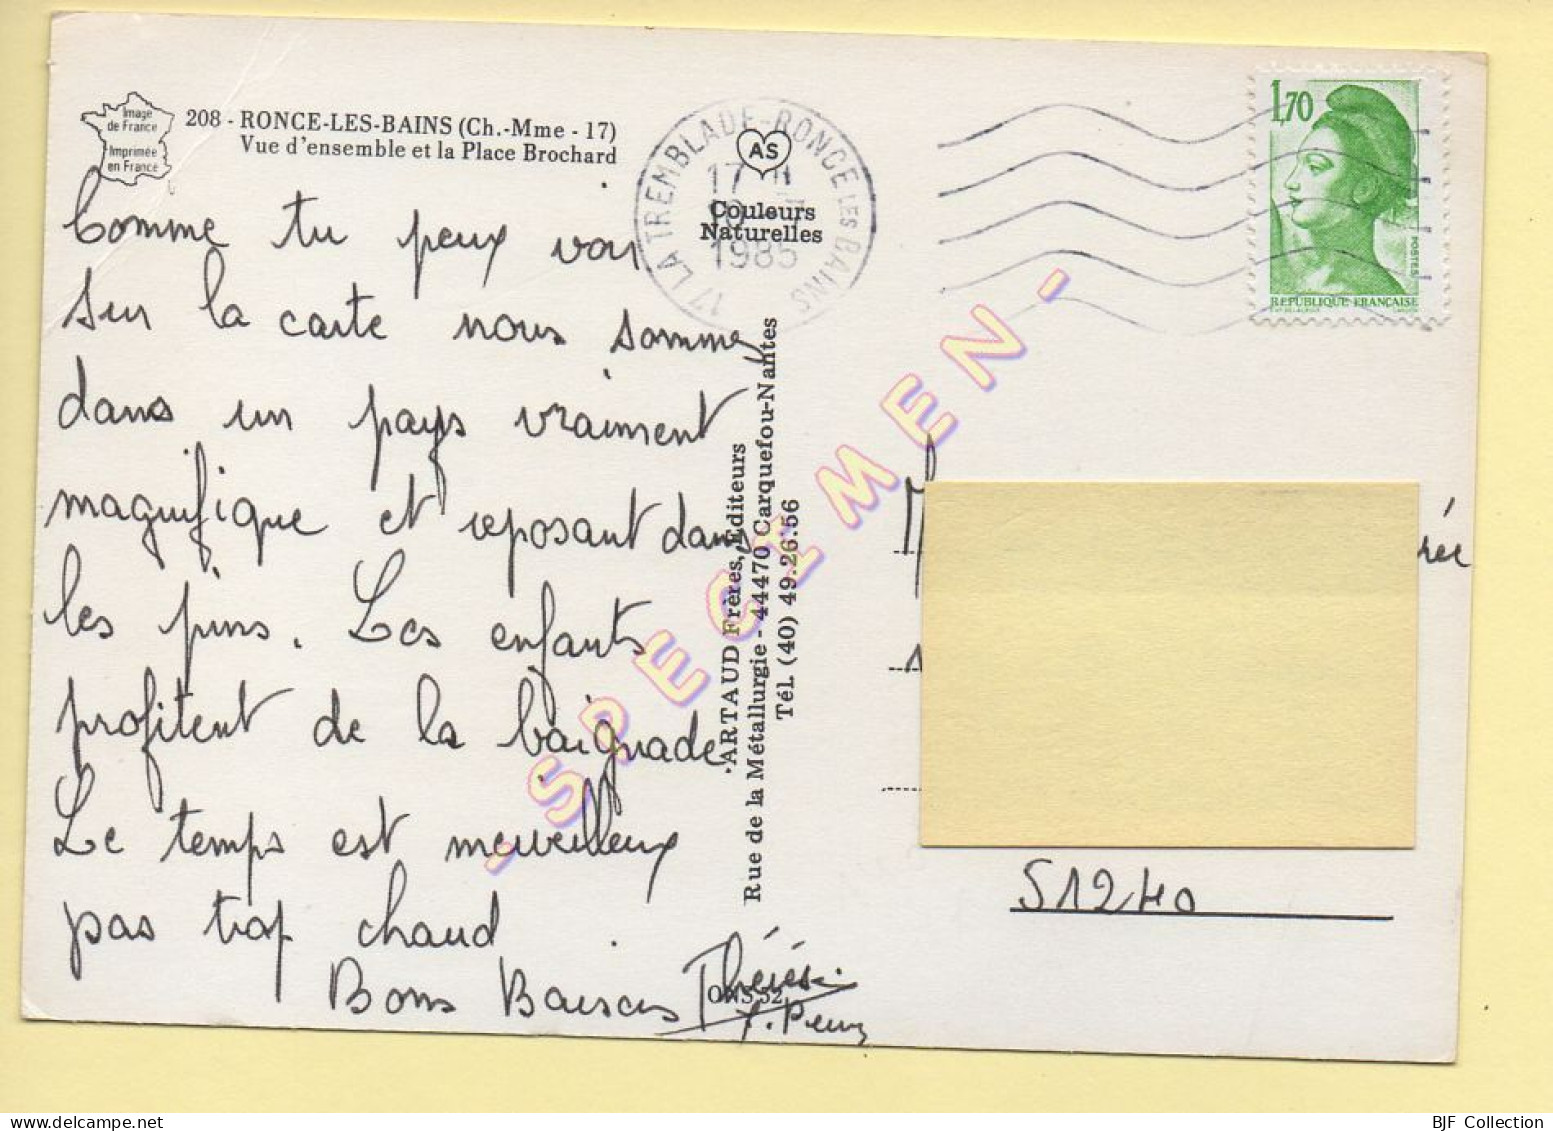 Image
de France
Imprimée
en France
208 - RONCE-LES-BAINS (Ch.-Mme - 17)
Vue d'ensemble et la Place Brochard
AS
Couleurs
Naturelles
17 LA TREMBLADE-RONCE LES BAINS
17 H
1985
1,70
POSTES
RÉPUBLIQUE FRANÇAISE
Comme tu peux voir
sur la carte nous sommes
dans un pays vraiment
magnifique et reposant dans
les pins. Les enfants
profitent de la baignade
Le temps est merveilleux
pas trop chaud.
Bons Baisers Thérèse
ARTAUD Frères, Éditeurs
Rue de la Métallurgie - 44470 Carquefou-Nantes
Tél. (40) 49.26.56
- SPECIMEN -
rée
51240
BJF Collection